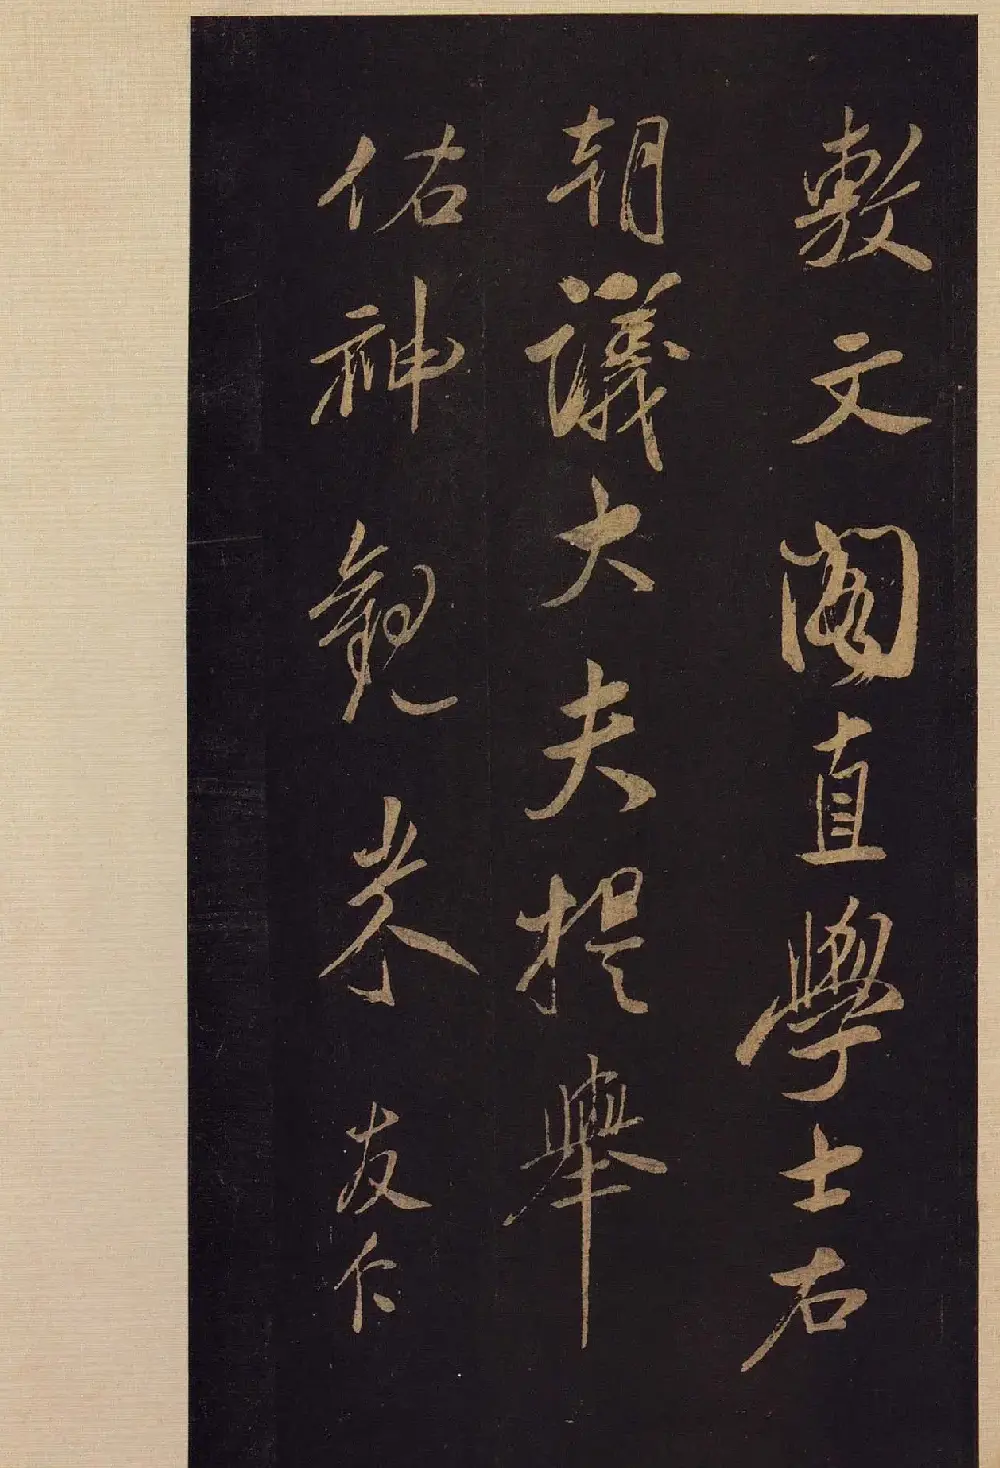 敷文閣直學士右
朝議大夫提舉
佑神觀米友仁